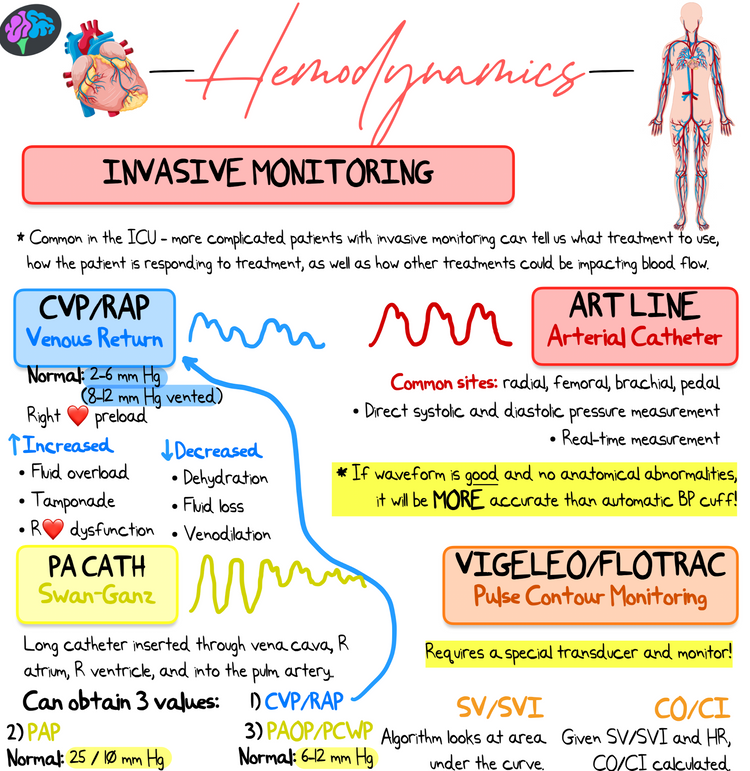 Hemodynamics
INVASIVE MONITORING
* Common in the ICU - more complicated patients with invasive monitoring can tell us what treatment to use,
how the patient is responding to treatment, as well as how other treatments could be impacting blood flow.
CVP/RAP
Venous Return
Normal: 2-6 mm Hg
(8-12 mm Hg vented)
Right ❤️ preload
↑Increased
• Fluid overload
• Tamponade
• R❤️ dysfunction
↓Decreased
• Dehydration
• Fluid loss
• Venodilation
ART LINE
Arterial Catheter
Common sites: radial, femoral, brachial, pedal
• Direct systolic and diastolic pressure measurement
• Real-time measurement
* If waveform is good and no anatomical abnormalities,
it will be MORE accurate than automatic BP cuff!
PA CATH
Swan-Ganz
Long catheter inserted through vena cava, R
atrium, R ventricle, and into the pulm artery.
Can obtain 3 values:
1) CVP/RAP
2) PAP
Normal: 25 / 10 mm Hg
3) PAOP/PCWP
Normal: 6-12 mm Hg
VIGELEO/FLOTRAC
Pulse Contour Monitoring
Requires a special transducer and monitor!
SV/SVI
Algorithm looks at area
under the curve.
CO/CI
Given SV/SVI and HR,
CO/CI calculated.